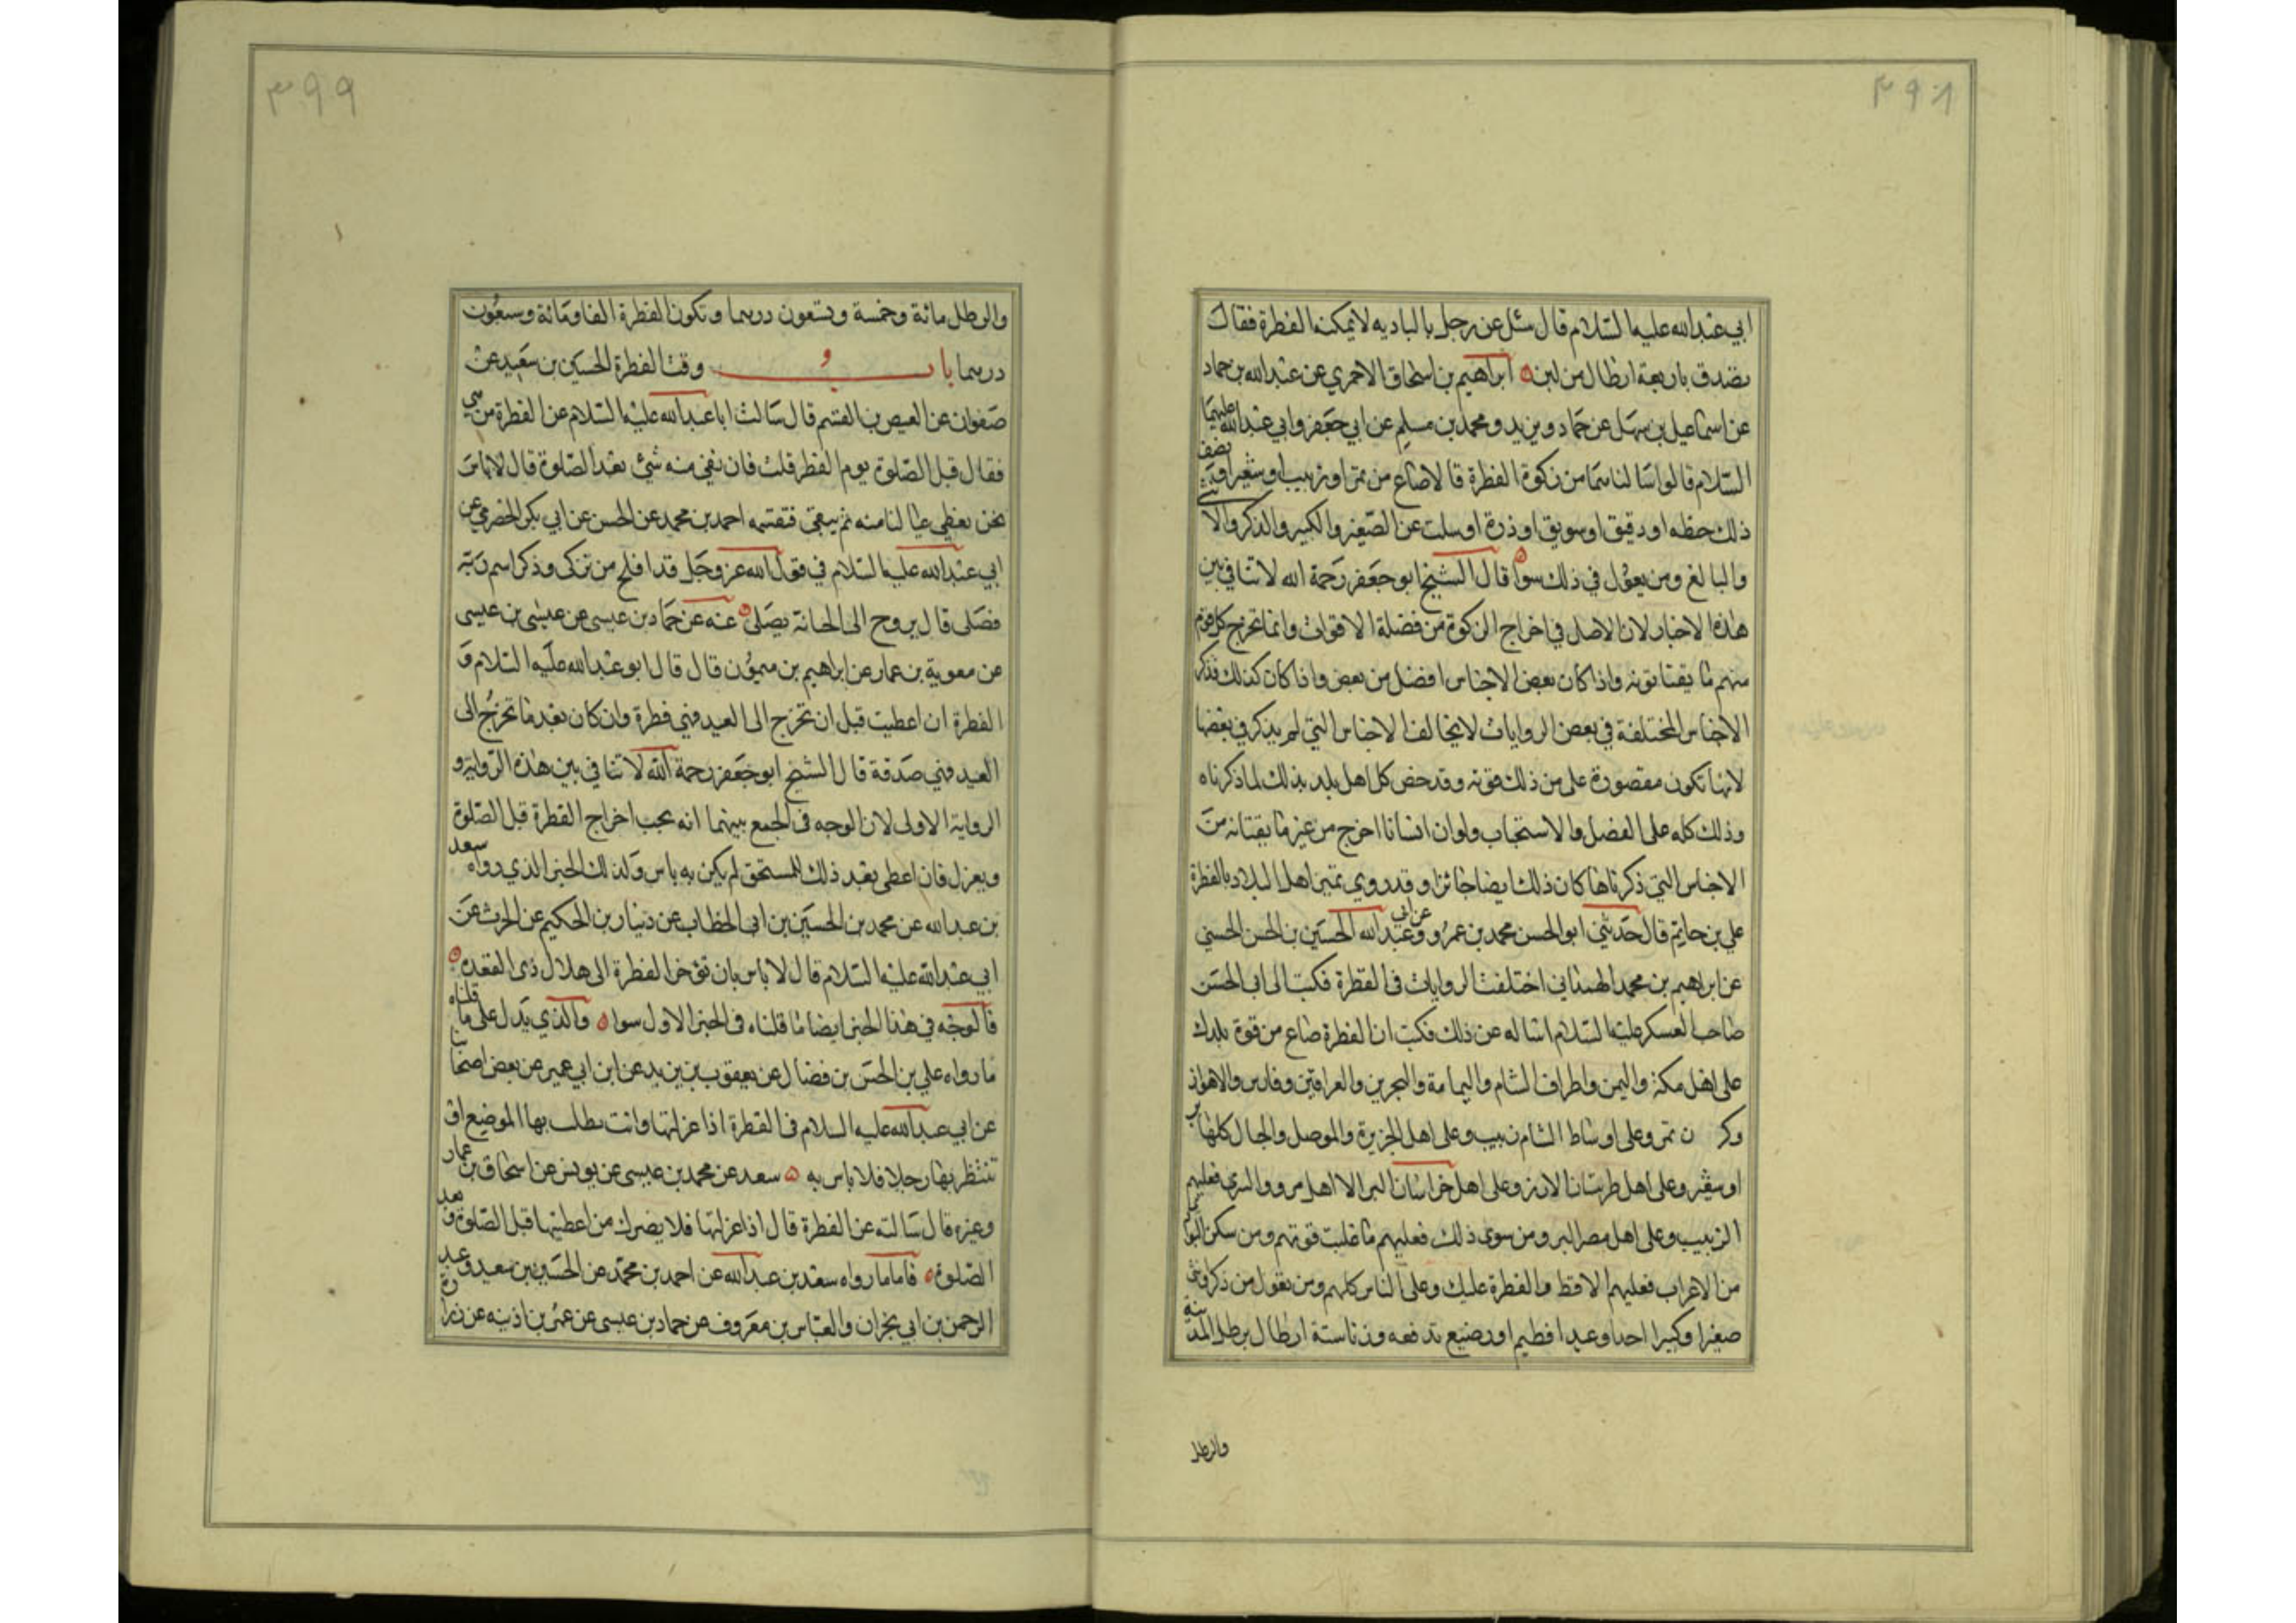 ٣٩٨
ابي عبدالله عليه السلام قال سئل عن رجل بالباديه لا يمكنه الفطرة فقال
يتصدق باربعة ارطال من لبن ابراهيم بن اسحاق الاحمري عن عبدالله بن حماد
عن اسماعيل بن سهل عن حماد وبريد ومحمد بن مسلم عن ابي جعفر وابي عبدالله عليهما
السلام قالوا سالناهما من زكوة الفطرة قالا صاع من تمر او زبيب او شعير او نصف
ذلك حنطه او دقيق او سويق او ذرة او سلت عن الصغير والكبير والذكر والانثى
والبالغ ومن يعول في ذلك سوا قال الشيخ ابو جعفر رحمة الله لا تنافي بين
هذه الاخبار لان الاصل في اخراج الزكوة من فضلة الاقوات وانما تخرج كل قوم
منهم ما يقتاتونه واذا كان بعض الاجناس افضل من بعض واذا كان كذلك فذكر
الاجناس المختلفة في بعض الروايات لا يخالف الاجناس التي لم يذكر في بعضها
لانها تكون مقصورة على من ذلك قوته وقد خص كل اهل بلد بذلك لما ذكرناه
وذلك كله على الفضل والاستحباب ولو ان انسانا اخرج من غير ما يقتاته من
الاجناس التي ذكرناها كان ذلك ايضا جائزا وقد روي تمييز اهل البلاد بالفطرة
علي بن حاتم قال حدثني ابو الحسن محمد بن عمرو عن ابي عبدالله الحسين بن الحسن الحسني
عن ابراهيم بن محمد الهمداني اختلفت الروايات في الفطرة فكتبت الى ابي الحسن
صاحب العسكر عليه السلام اساله عن ذلك فكتب ان الفطرة صاع من قوت بلدك
على اهل مكة واليمن واطراف الشام واليمامة والبحرين والعراقين وفارس والاهواز
وكر ن تمر وعلى اوساط الشام زبيب وعلى اهل الجزيرة والموصل والجبال كلها بر
او شعير وعلى اهل طبرستان الارز وعلى اهل خراسان البر الا اهل مرو والري فعليهم
الزبيب وعلى اهل مصر البر ومن سوى ذلك فعليهم ما غلبت قوتهم ومن سكن البوادي
من الاعراب فعليهم الاقط والفطرة عليك وعلى الناس كلهم ومن يعول من ذكر وانثى
صغيرا وكبيرا حرا وعبدا فطيم او رضيع تدفعه وزنا ستة ارطال برطل المدينة
والرطل
٣٩٩
والرطل مائة وخمسة وتسعون درهما وتكون الفطرة الفا ومائة وسبعون
درهما باب وقت الفطرة الحسين بن سعيد عن
صفوان عن العيص بن القسم قال سالت ابا عبدالله عليه السلام عن الفطرة متى هي
فقال قبل الصلوة يوم الفطر قلت فان بقي منه شئ بعد الصلوة قال لا باس
نحن نعطي عيالنا منه ثم يبقى فنقسمه احمد بن محمد عن الحسن عن ابي بكر الحضرمي عن
ابي عبدالله عليه السلام في قول الله عز وجل قد افلح من تزكى وذكر اسم ربه
فصلى قال يروح الى الجبانة يصلي عنه عن حماد بن عيسى عن عيسى بن عيسى
عن معوية بن عمار عن ابراهيم بن ميمون قال قال ابو عبدالله عليه السلام و
الفطرة ان اعطيت قبل ان تخرج الى العيد فهي فطرة وان كان بعد ما تخرج الى
العيد فهي صدقة قال الشيخ ابو جعفر رحمة الله لا تنافي بين هذه الرواية و
الرواية الاولى لان الوجه في الجمع بينهما انه يجب اخراج الفطرة قبل الصلوة
ويعزل فان اعطى بعد ذلك للمستحق لم يكن به باس ولذلك الخبر الذي رواه سعد
بن عبدالله عن محمد بن الحسين بن ابي الخطاب عن دينار بن الحكيم عن الحرث عن
ابي عبدالله عليه السلام قال لا باس بان تؤخر الفطرة الى هلال ذى القعده
فالوجه في هذا الخبر ايضا ما قلناه في الخبر الاول سوا والذي يدل على ما قلناه
ما رواه علي بن الحسن بن فضال عن يعقوب بن يزيد عن ابن ابي عمير عن بعض اصحابنا
عن ابي عبدالله عليه السلام في الفطرة اذا عزلتها وانت تطلب بها الموضع او
تنتظر بها رجلا فلا باس به سعد عن محمد بن عيسى عن يونس عن اسحاق بن عمار
وغيره قال سالته عن الفطرة قال اذا عزلتها فلا يضرك من اعطيتها قبل الصلوة وبعد
الصلوة فاما ما رواه سعد بن عبدالله عن احمد بن محمد عن الحسين بن سعيد وعبد
الرحمن بن ابي نجران والعباس بن معروف عن حماد بن عيسى عن عمر بن اذينه عن زرارة